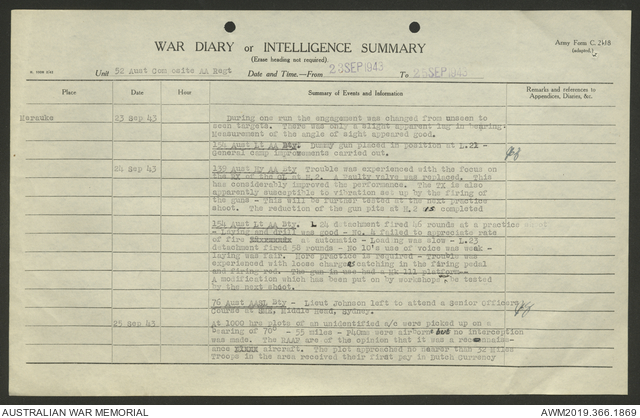 Army Form C. 2118
(adapted.)
WAR DIARY or INTELLIGENCE SUMMARY
(Erase heading not required).
Unit 52 Aust Composite AA Regt Date and Time.—From 23 SEP 1943 To 25 SEP 1943
Place Date Hour Summary of Events and Information Remarks and references to
Appendices, Diaries, &c.
Merauke 23 Sep 43 During one run the engagement was changed from unseen to
seen targets. There was only a slight apparent lag in bearing.
Measurement of the angle of sight appeared good.
154 Aust Lt AA Bty. Dummy gun placed in position at L.21 -
General camp improvements carried out.
24 Sep 43 Aust Hy AA Bty Trouble was experienced with the focus on
the RX of the GL at H.2. A faulty valve was replaced. This
has considerably improved the performance. The TX is also
apparently susceptible to vibration set up by the firing of
the guns - This will be further tested at the next practice
shoot. The reduction of the gun pits at H.2 is completed
154 Aust Lt AA Bty L 24 detachment fired 46 rounds at a practice shoot
- Laying and drill was good - No. 4 failed to appreciate rate
of fire at automatic - Loading was slow - L.23
detachment fired 38 rounds - No 10's use of voice was weak -
laying was fair. More practice is required - Trouble was
experienced with loose charges catching in the firing pedal
and firing rod. The gun in use had a Mk 111 platform -
A modification which has been put on by workshops to be tested
by the next shoot.
76 Aust AASL Bty - Lieut Johnson left to attend a Senior Officers
Course at Middle Head, Sydney.
25 Sep 43 At 1000 hrs plots of an unidentified a/c were picked up on a
bearing of 70° - 55 miles - P40ms were airborne but no interception
was made. The RAAF are of the opinion that it was a reconnais-
ance aircraft. The plot approached no nearer than 32 miles
Troops in the area received their first pay in Dutch Currency
AUSTRALIAN WAR MEMORIAL AWM2019.366.1869